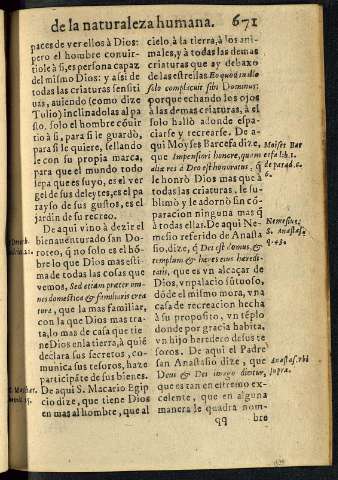 de la naturaleza humana. 671
paces de ver ellos à Dios:
pero el hombre conuir-
tiole à si, es persona capaz
del mismo Dios: y asi de
todas las criaturas sensiti
uas, auiendo (como dize
Tulio) inclinadolas al pa
sto, solo el hombre cõuir
tiò à si, para si le guardò,
para si le quiere, sellando
le con su propia marca,
para que el mundo todo
sepa que es suyo, es el ver
gel de sus deleytes, es el pa
rayso de sus gustos, es el
jardin de su recreo.
De aqui vino à dezir el
bienauenturado san Do-
roteo, q̃ no solo es el hõ-
bre lo que Dios mas esti-
ma de todas las cosas que
vemos, Sed etiam præter om-
nes domestica & familiaris crea
tura, que la mas familiar,
con la que Dios mas tra-
ta, lo mas de casa que tie-
ne Dios en la tierra, à quiẽ
declara sus secretos, co-
munica sus tesoros, haze
participãte de sus bienes.
De aqui S. Macario Egip
cio dize, que tiene Dios
en mas al hombre, que al
cielo, à la tierra, à los ani-
males, y à todas las demas
criaturas que ay debaxo
de las estrellas. Eo quod in illo
solo complicuit sibi Dominus:
porque echando los ojos
à las demas criaturas, à el
solo hallò adonde espa-
ciarse y recrearse. De a-
qui Moyses Barcefa dize,
que Impensiori honore, quem
dize res à Deo est honoratus, q̃
le honrò Dios mas que à
todas las criaturas, le su-
blimò y le adornò sin cõ-
paracion ninguna mas q̃
à todas ellas. De aqui Ne-
mesio referido de Anasta
sio, dize, q̃ Dei est domus, &
templum & hæres eius hæredi-
tatis, que es vn alcaçar de
Dios, vn palacio sũtuoso,
dõde el mismo mora, vna
casa de recreacion hecha
à su proposito, vn tẽplo
donde por gracia habita,
vn hijo heredero de sus te
soros. De aqui el Padre
san Anastasio dize, que
Deus & Dei imago dicitur,
que es tan en estremo ex-
celente, que en alguna
manera le quadra nom-
qq bre
Moises Bar
cefa lib. 1.
de parad. c.
6.
Nemesius,
S. Anastas.
q. 43.
Anastas. vbi
supra.